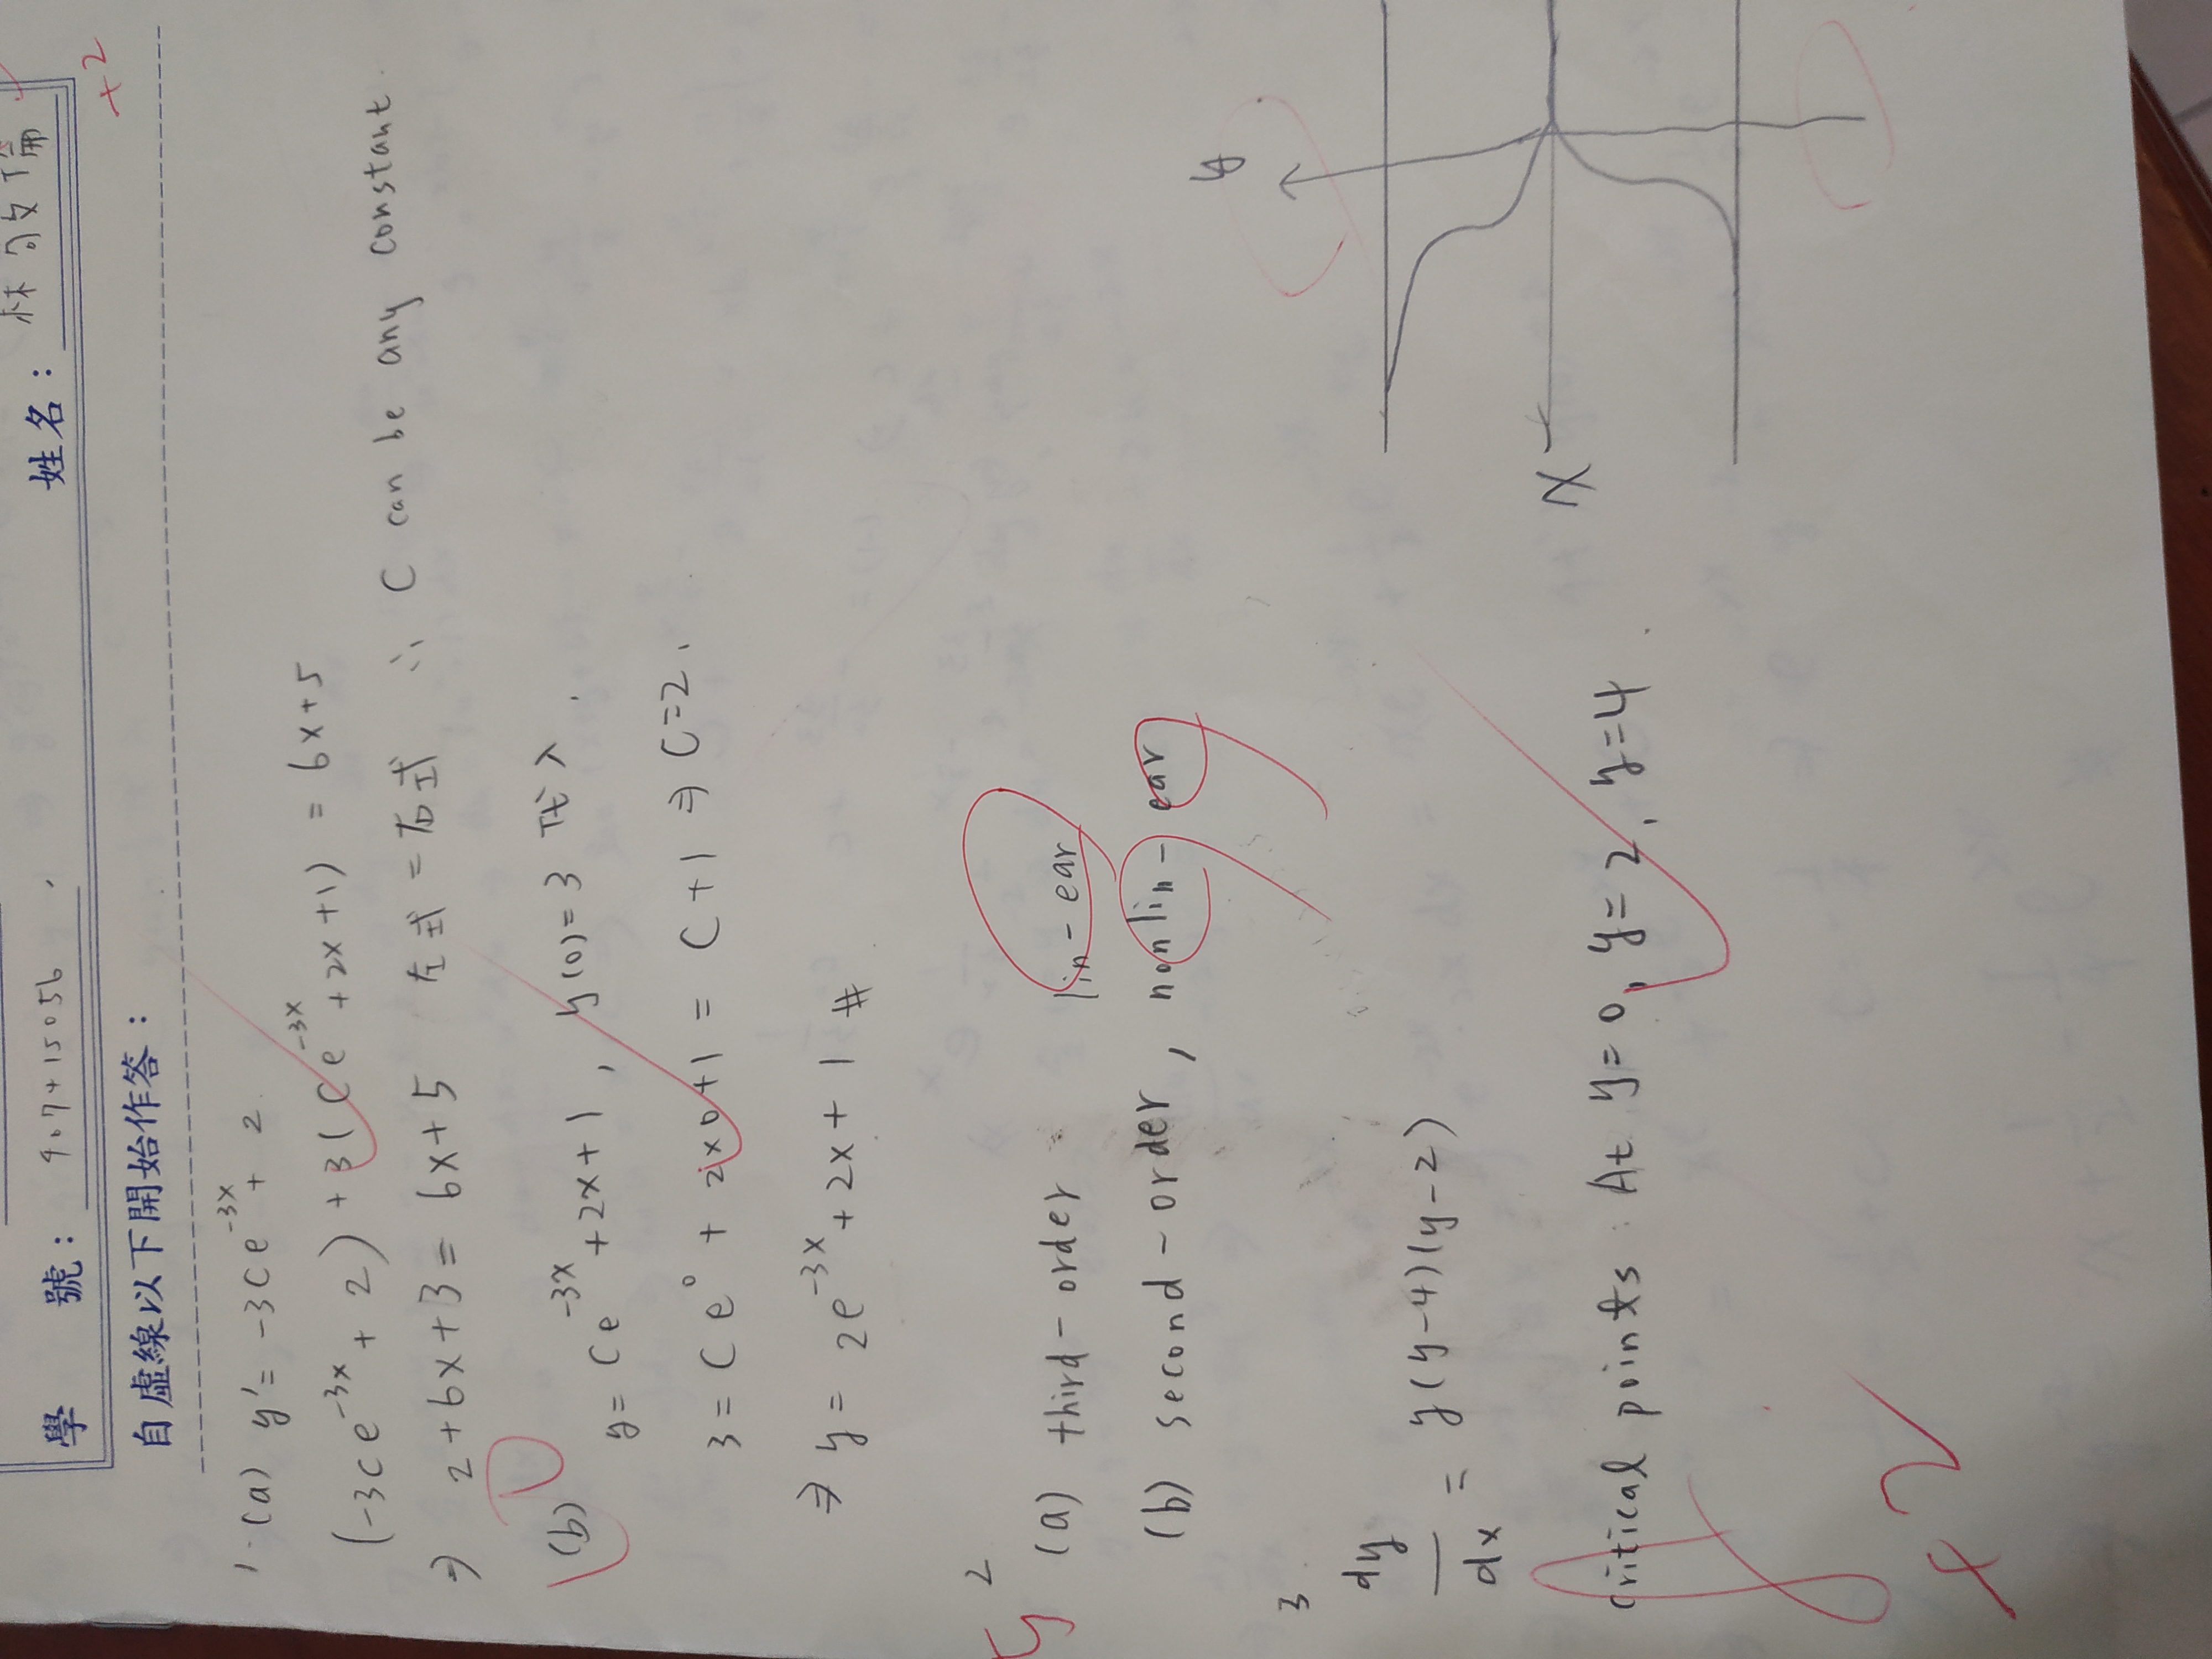 學 號： 407415056
姓名： 林敬倫
+2
自虛線以下開始作答：
1. (a) y' = -3Ce^{-3x} + 2
(-3Ce^{-3x} + 2) + 3(Ce^{-3x} + 2x + 1) = 6x+5
⇒ 2+6x+3 = 6x+5 左式 = 右式 ∴ C can be any constant.
(b) y = Ce^{-3x} + 2x + 1, y(0) = 3 代入.
3 = Ce^0 + 2x0+1 = C+1 ⇒ C=2.
⇒ y = 2e^{-3x} + 2x + 1 #
2
(a) third-order lin-ear
(b) second-order, nonlin-ear
3
dy/dx = y(y-4)(y-2)
critical points. At y=0, y=2, y=4.
y
x
+2